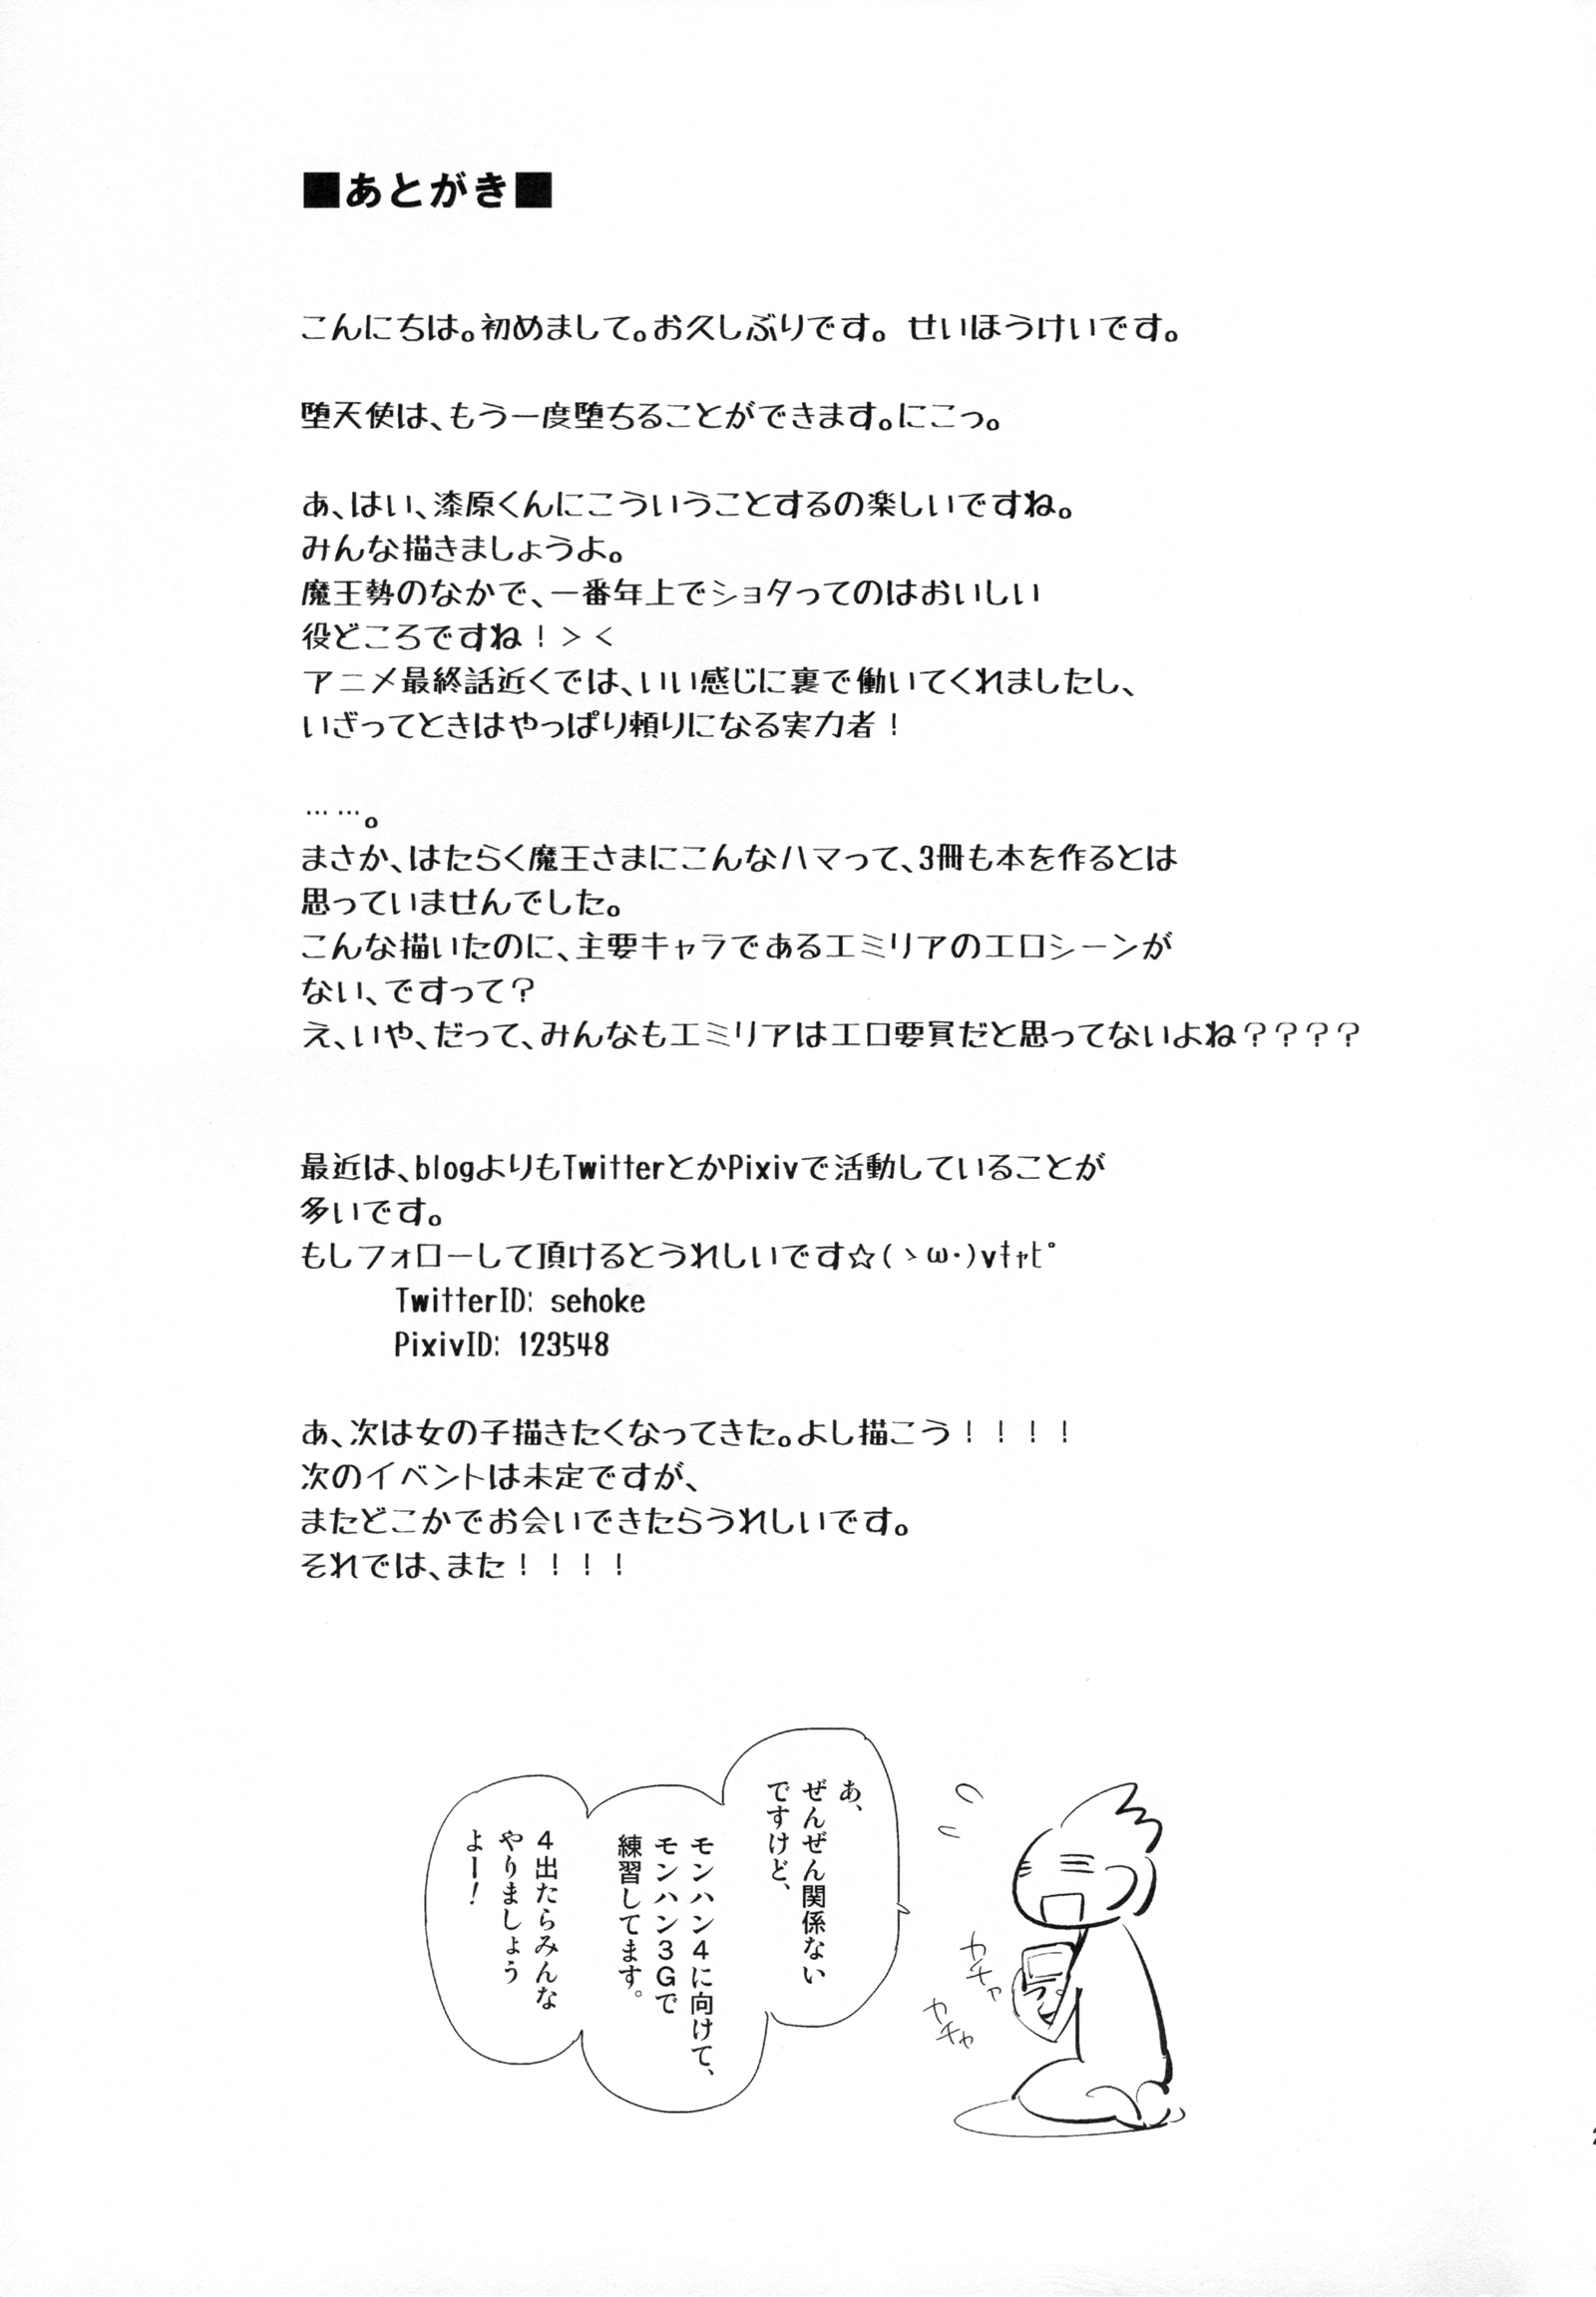 ■あとがき■
こんにちは。初めまして。お久しぶりです。 せいほうけいです。
堕天使は、もう一度堕ちることができます。にこっ。
あ、はい、漆原くんにこういうことするの楽しいですね。
みんな描きましょうよ。
魔王勢のなかで、一番年上でショタってのはおいしい
役どころですね！＞＜
アニメ最終話近くでは、いい感じに裏で働いてくれましたし、
いざってときはやっぱり頼りになる実力者！
……。
まさか、はたらく魔王さまにこんなハマって、3冊も本を作るとは
思っていませんでした。
こんな描いたのに、主要キャラであるエミリアのエロシーンが
ない、ですって？
え、いや、だって、みんなもエミリアはエロ要員だと思ってないよね？？？？
最近は、blogよりもTwitterとかPixivで活動していることが
多いです。
もしフォローして頂けるとうれしいです☆(ゝω･)vｷｬﾋﾟ
TwitterID: sehoke
PixivID: 123548
あ、次は女の子描きたくなってきた。よし描こう！！！！
次のイベントは未定ですが、
またどこかでお会いできたらうれしいです。
それでは、また！！！！
あ、
ぜんぜん関係ない
ですけど、
モンハン４に向けて、
モンハン３Ｇで
練習してます。
４出たらみんな
やりましょう
よー！
カチャ
カチャ